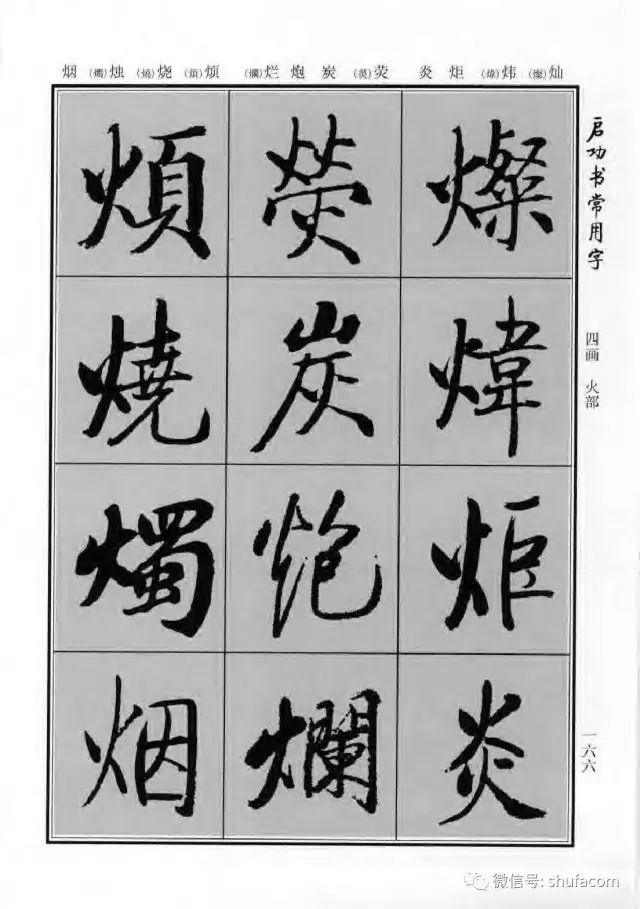 灿(燦) 炜(煒) 炬 炎 荧(熒) 炭 炮 烂(爛) 烦(煩) 烧(燒) 烛(燭) 烟
启功书常用字
四画 火部
一六六
燦
煒
炬
炎
熒
炭
炮
爛
煩
燒
燭
烟
微信号: shufacom